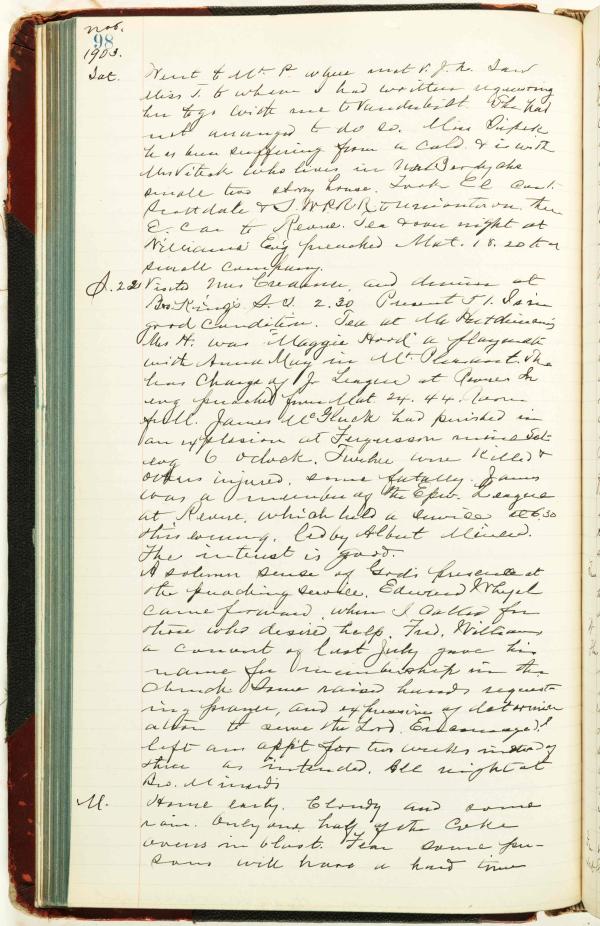 Nov.
98
1903.
Sat. Went to Mt. P. where met V. J. K. Saw
Miss T. to whom I had written requesting
her to go with me to Vanderbilt. She had
not arranged to do so. Miss
has been suffering from a cold & is with
Mrs who lives in
small two story house. Took El. car
Scottdale & S.W.P.R.R. to Uniontown then
E. Car to Revere. Tea & over night at
Williams' Evg preached Mat. 18. 20 to a
small company.
S. 22 Visits Mrs and dinner at
Bro King's S. S. 2.30 Present 51. S. in
good condition. Tea at Mr Hutchinson's
Mrs H. was "Maggie Hood" a playmate
with Anna May in Mt. Pleasant. She
has charge of Jr League at Revere In
evg preached from Mat 24. 44.
James McGluck had perished in
an explosion at Fergusson mine Sat-
evg 6 o'clock. Twelve were killed &
others injured, some fatally. James
was a member of the Epw. League
at Revere, which held a service at 6.30
this evening, led by Albert Minerd.
The interest is good.
A solemn sense of God's presence at
the preaching service. Edward
came forward when I called for
those who desired help. Fred. Williams
a convert of last July gave his
name for membership in the
church Some raised hands request-
ing prayer, and expressive of determin-
ation to serve the Lord. Encouraged. I
left an app't for two weeks instead of
three as intended. All night at
Bro. Minerd's
M. Home early. Cloudy and some
rain. Only one half of the Coke
ovens in blast. Fear some per-
sons will have a hard time